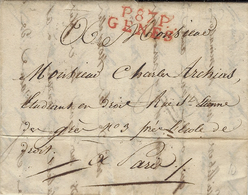 P.87.P
GÊNES
A Monsieur
Monsieur Charles Archias
Etudiant en Droit Rue St. Etienne
des grès No 3 près l'Ecole de
droit.
à Paris